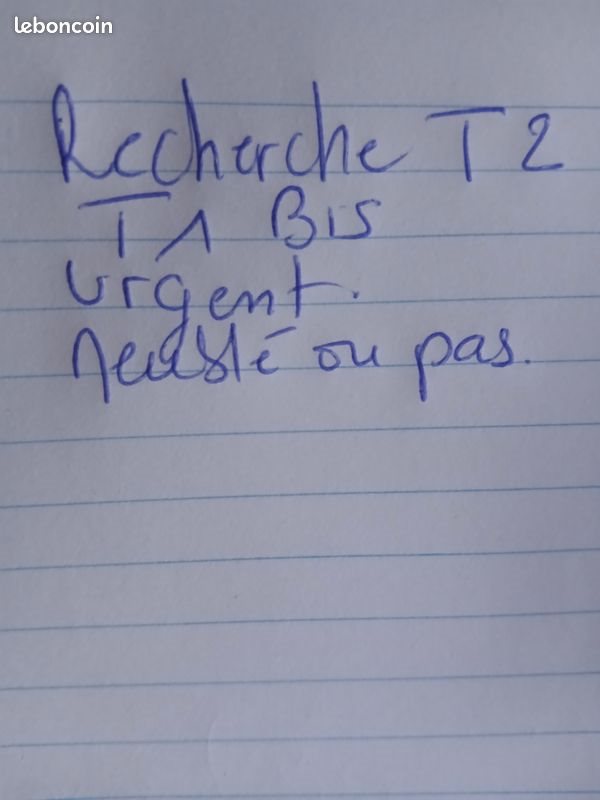 leboncoin
Recherche T2
T1 Bis
urgent.
Meublé ou pas.